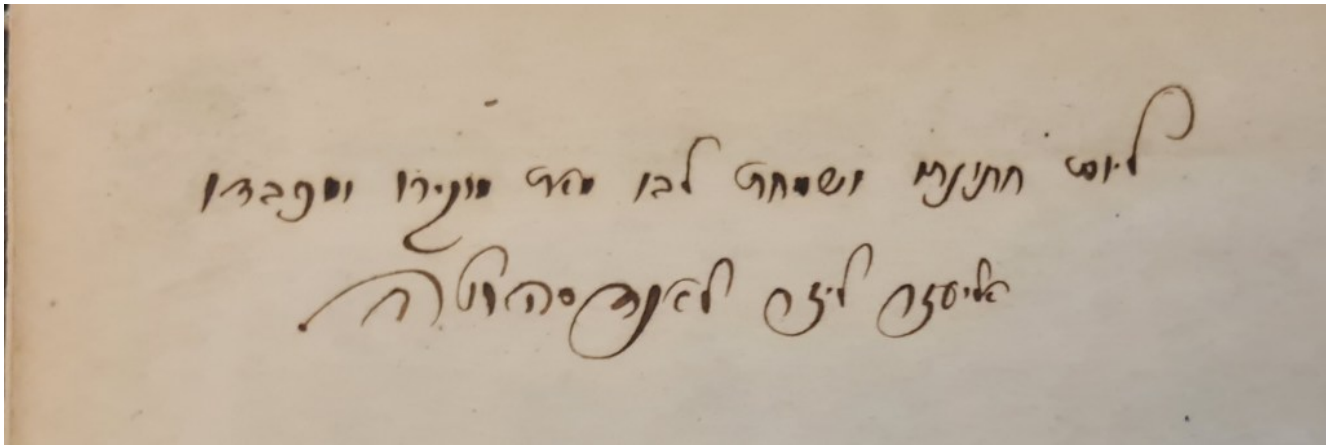 ליום חתונתו ושמחת לבו מאת מוקירו ומכבדו
אליעזר ליזר לאנדסהוטה